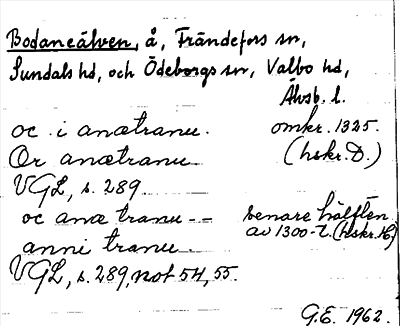 Bodaneälven, å, Frändefors sn,
Sundals hd, och Ödeborgs sn, Valbo hd,
Älvsb. l.
oc i anætranu. omkr. 1325.
Ør anætranu (hskr. D.)
VGL, s. 289.
oc anæ tranu -- senare hälften
anni tranu. av 1300-t. (hskr. )
VGL, s. 289, not 54, 55.
G.E. 1962.